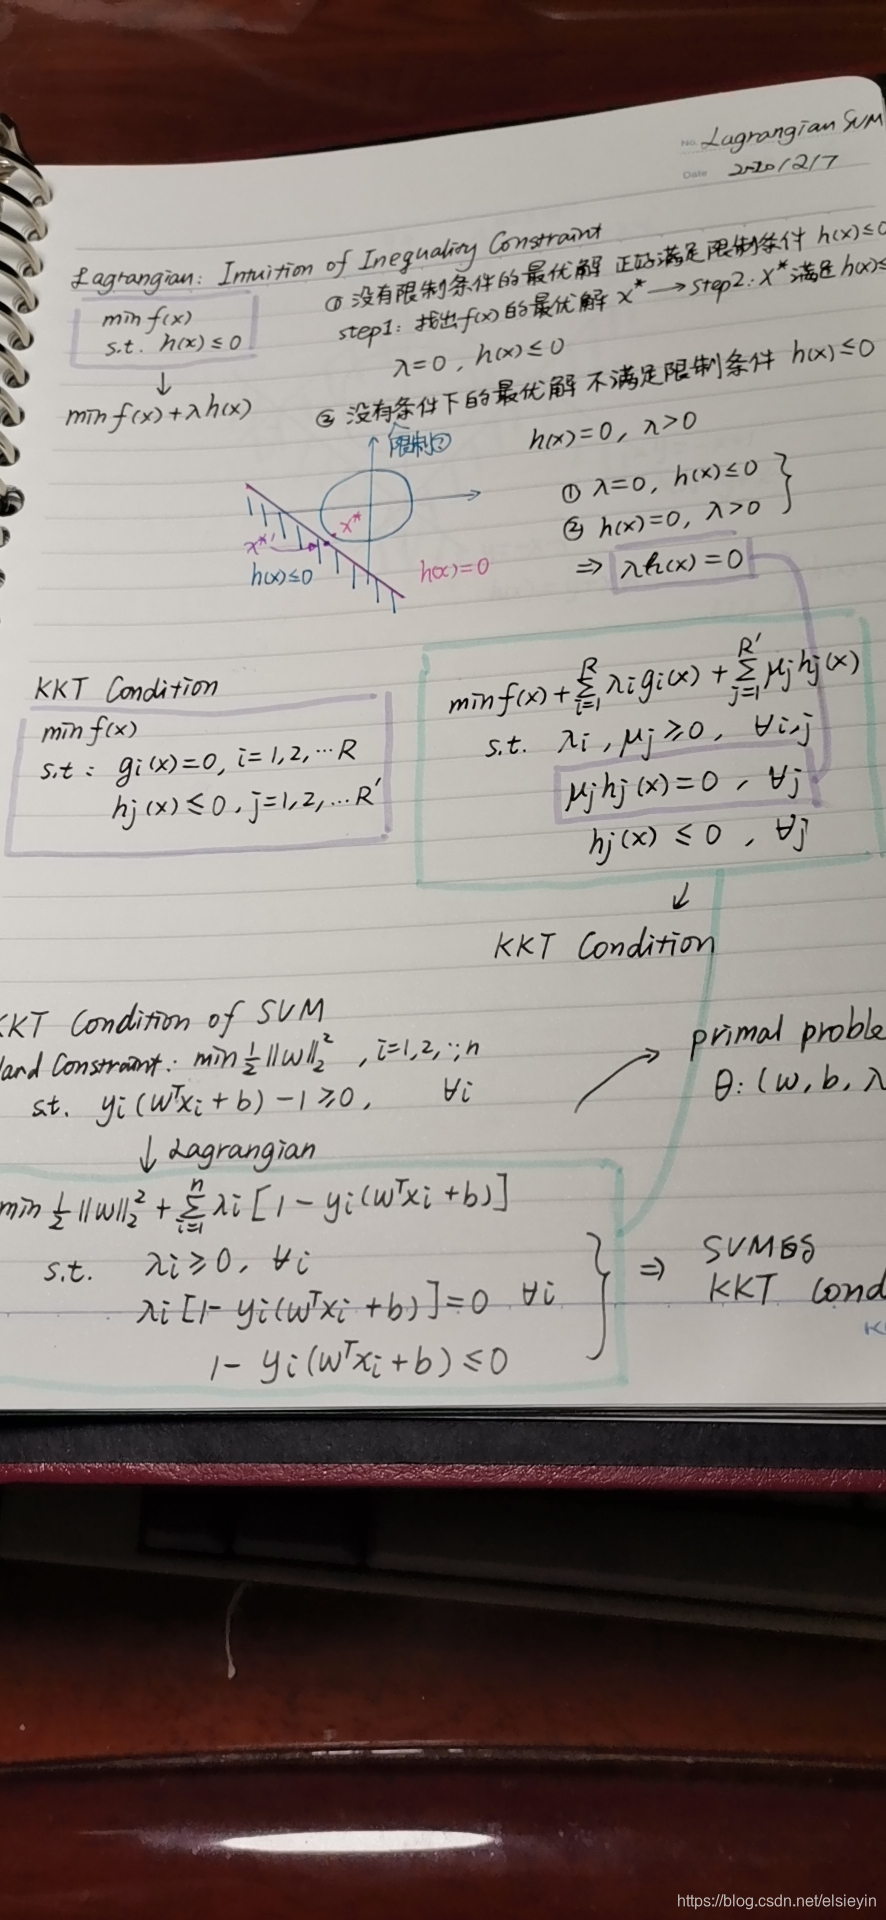 No. Lagrangian SVM
Date 2020/2/7
Lagrangian: Intuition of Inequality Constraint
min f(x)
s.t. h(x) ≤ 0
↓
min f(x) + λ h(x)
① 没有限制条件的最优解 正好满足限制条件 h(x) ≤ 0
step1: 找出f(x)的最优解 x* → step2: x* 满足 h(x) ≤
λ=0, h(x) ≤ 0
② 没有条件下的最优解 不满足限制条件 h(x) ≤ 0
限制
h(x)=0, λ>0
x*
x*'
h(x)≤0
h(x)=0
① λ=0, h(x)≤0 }
② h(x)=0, λ>0
⇒ λh(x)=0
KKT Condition
min f(x)
s.t: gi(x)=0, i=1,2,…R
hj(x) ≤ 0, j=1,2,…R'
min f(x) + ∑_{i=1}^{R} λi gi(x) + ∑_{j=1}^{R'} μj hj(x)
s.t. λi, μj ≥ 0, ∀i,j
μj hj(x) = 0, ∀j
hj(x) ≤ 0, ∀j
↓
KKT Condition
KKT Condition of SVM
Hard Constraint: min ½||w||₂², i=1,2,..,n
s.t. yi(wᵀxi + b) - 1 ≥ 0, ∀i
↓ Lagrangian
min ½||w||₂² + ∑_{i=1}^{n} λi [1 - yi(wᵀxi + b)]
s.t. λi ≥ 0, ∀i
λi [1 - yi(wᵀxi + b)] = 0 ∀i
1 - yi(wᵀxi + b) ≤ 0
primal proble
θ: (w, b, λ
⇒ SVM的
KKT Cond
https://blog.csdn.net/elsieyin